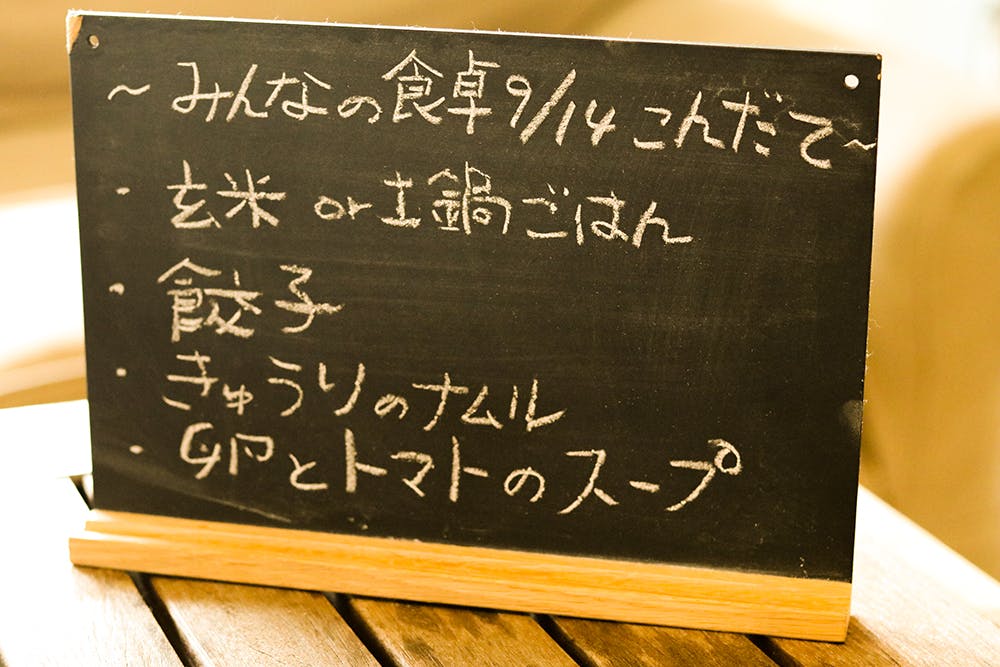 ～みんなの食卓9/14こんだて～
・玄米 or 土鍋ごはん
・餃子
・きゅうりのナムル
・卵とトマトのスープ